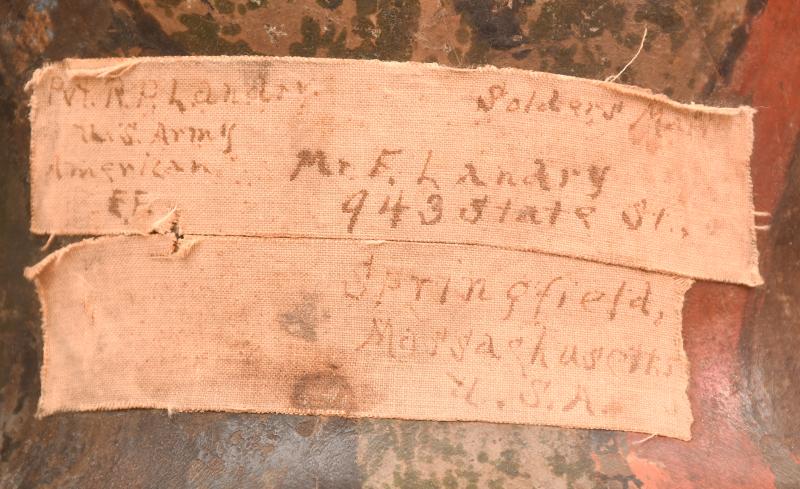 Pvt. R.P. Landry.
Solders Mail
U.S. Army
American
E.F.
Mr. F. Landry
943 State St.,
Springfield,
Massachusetts
U.S.A.